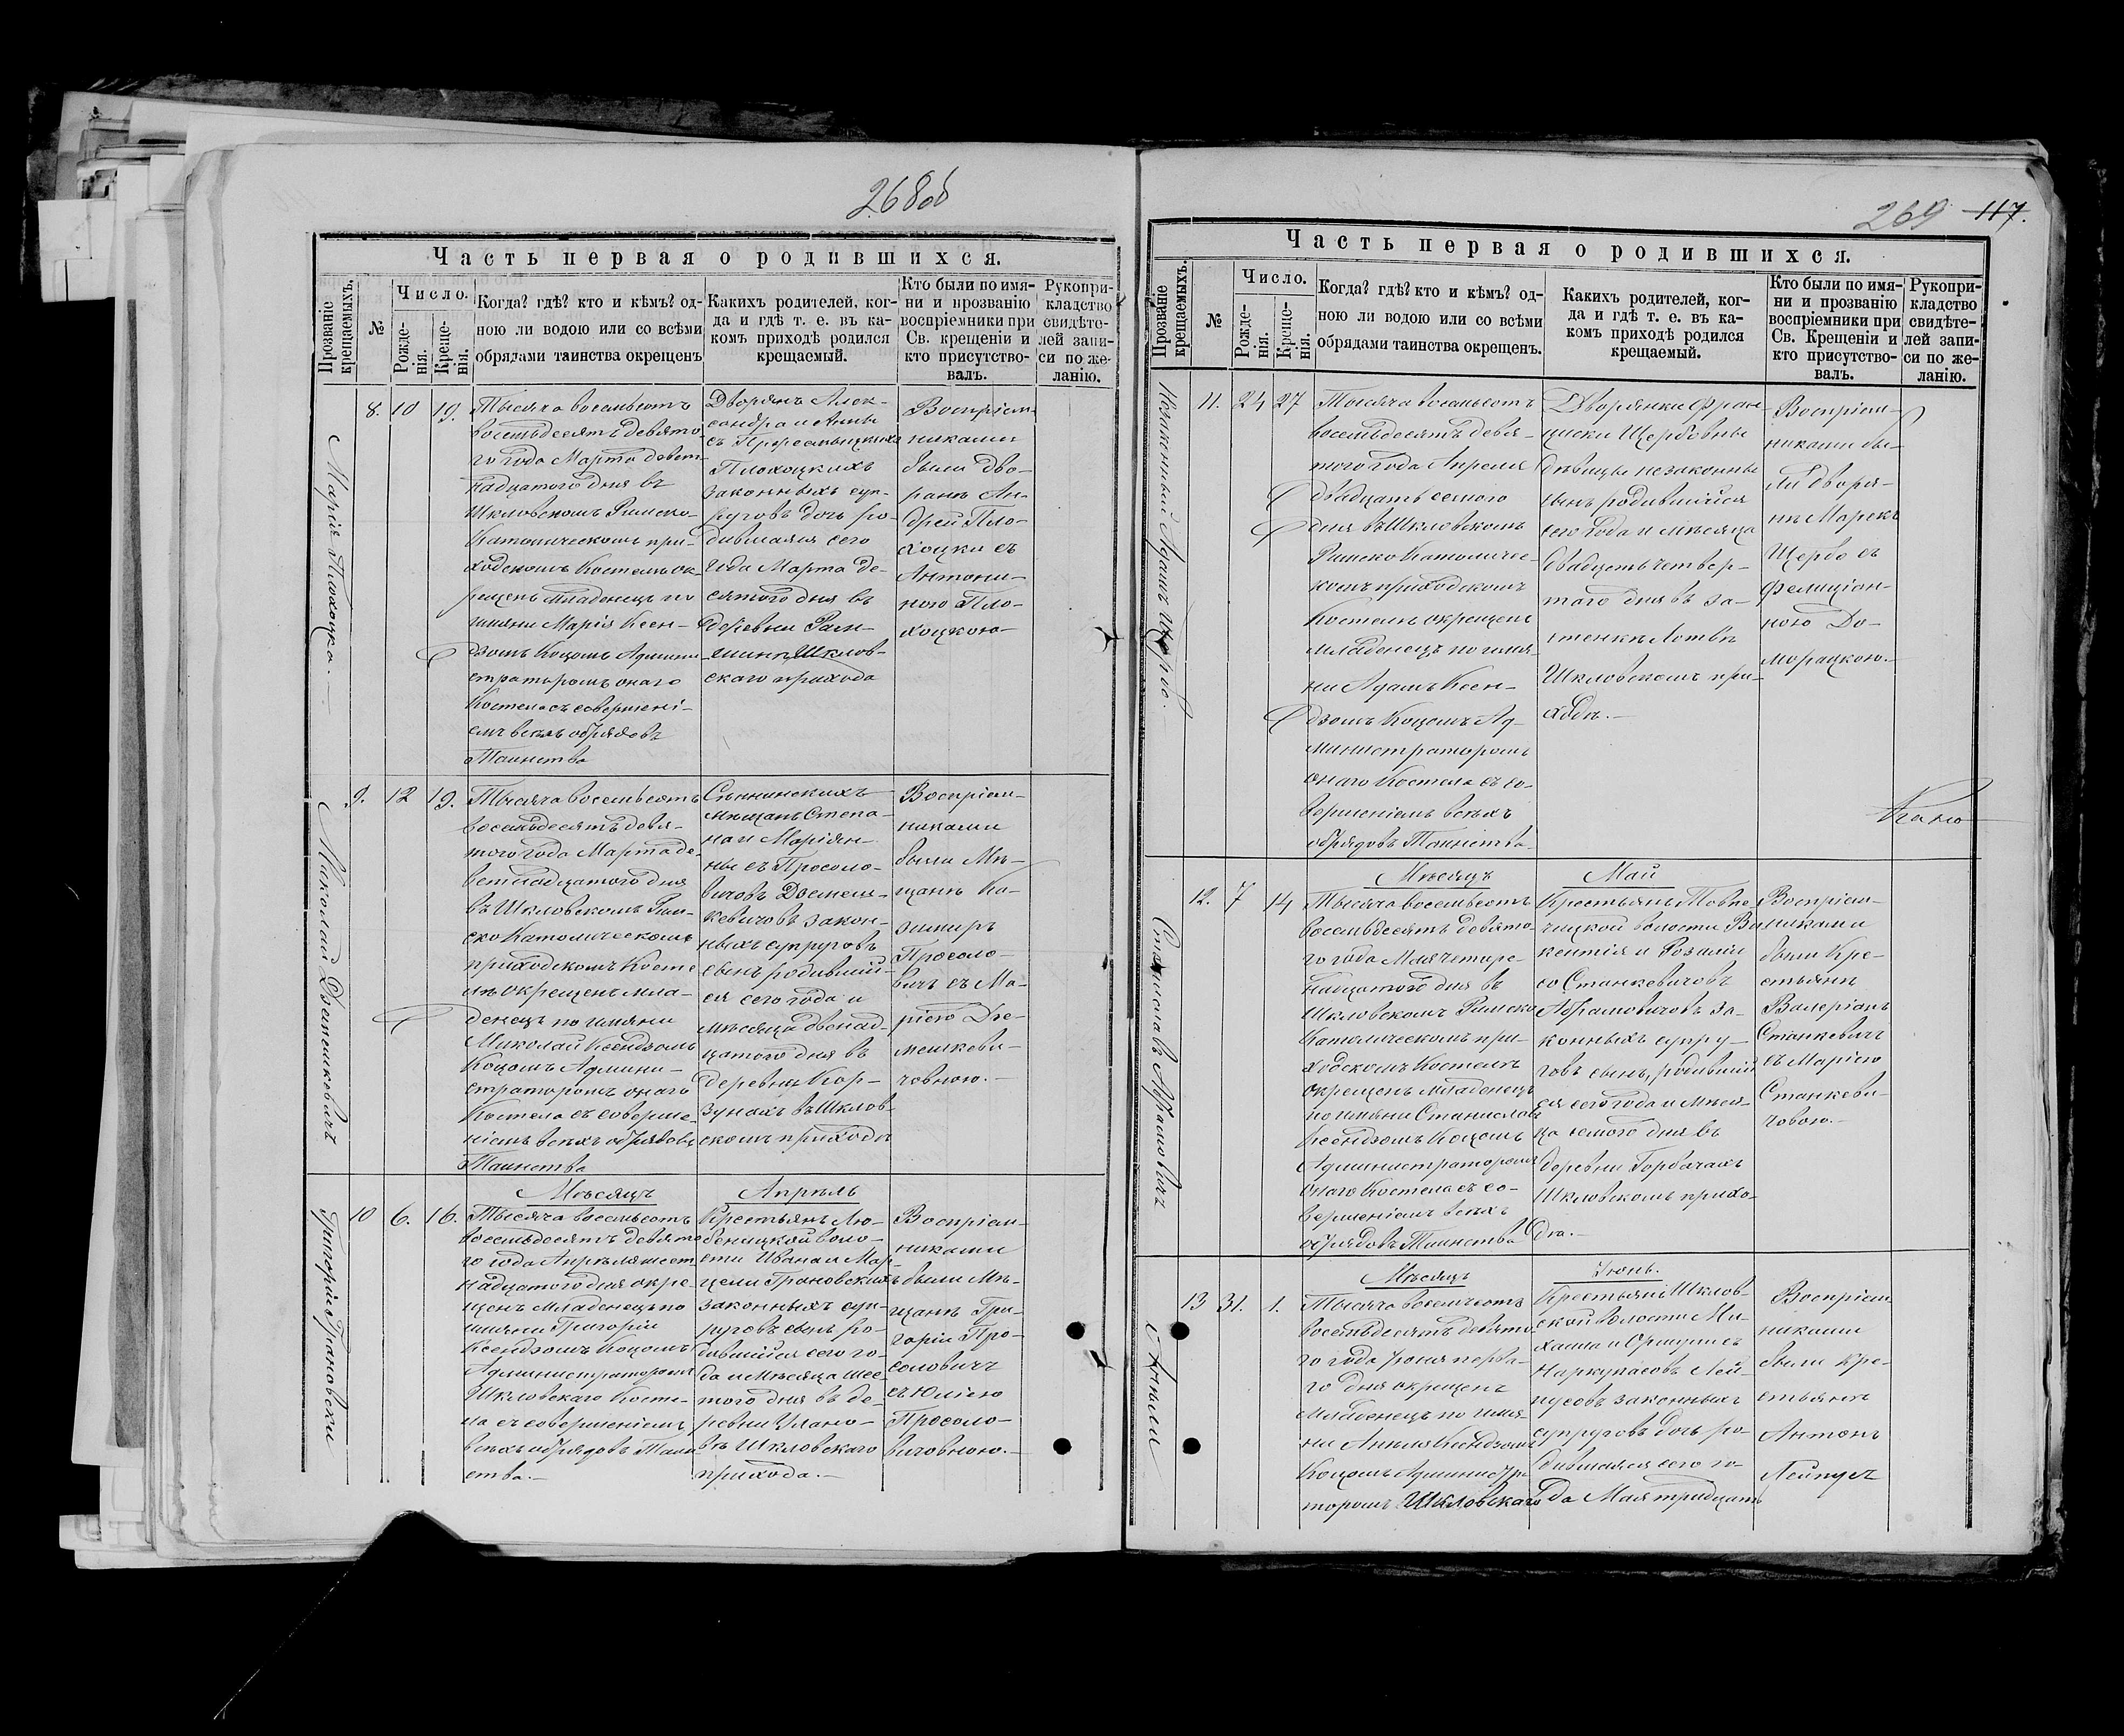 268об
Часть первая о родившихся.
Прозваніе крещаемыхъ.
№
Число.
Рожденія.
Крещенія.
Когда? гдѣ? кто и кѣмъ? од-
ною ли водою или со всѣми
обрядами таинства окрещенъ
Какихъ родителей, ког-
да и гдѣ т. е. въ ка-
комъ приходѣ родился
крещаемый.
Кто были по имя-
ни и прозванію
воспріемники при
Св. крещеніи и
кто присутство-
валъ.
Рукопри-
кладство
свидѣте-
лей запи-
си по же-
ланію.
Марія Плохоцка.
8. 10 19.
Тысяча восемьсотъ
восемьдесятъ девято
го года Марта девят-
надцатого дня въ
Шкловскомъ Римско-
Католическомъ при-
ходскомъ Костелѣ ок-
рещенъ Младенецъ по
имяни Марія Ксен-
дзомъ Коцомъ Админи-
страторомъ онаго
Костела съ совершені-
емъ всѣхъ обрядовъ
Таинства
Дворянъ Алек-
сандра и Анны
Плохоцкихъ
законныхъ суп-
руговъ дочь ро-
дившаяся сего
года Марта де-
сятого дня въ
деревни
Шклов-
скаго прихода
Воспріем-
никами
были Дво-
ранъ Ан-
дрей Пло-
хоцки съ
Антони-
ною Пло-
хоцкою
Миколай Дземешкевичъ
9. 12 19.
Тысяча восемьсотъ
восемьдесятъ девя-
того года Марта де-
вятнадцатого дня
въ Шкловскомъ Рим-
ско Католическомъ
приходскомъ Косте
лѣ окрещенъ мла-
денецъ по имяни
Миколай Ксендзомъ
Коцомъ Админи-
страторомъ онаго
Костела съ соверше
ніемъ всѣхъ обрядовъ
Таинства
Сѣннинскихъ
мѣщанъ Степа-
на и Маріян-
ны съ Просоло-
вичовъ
законныхъ супруговъ
сынъ родивший-
ся сего года и
мѣсяца двенад-
цатого дня въ
деревнѣ Кор-
зунахъ въ Шклов
скомъ приходѣ
Воспріем-
никами
были Мѣ-
щанъ Ка-
зимиръ
Просоло-
вичъ съ Ма-
ріею Дзе-
мешкеви-
човною.
Мѣсяцъ Апрѣль
Григорій Грановски
10 6. 16.
Тысяча восемьсотъ
восемьдесятъ девято
го года Апрѣля шест
надцатого дня окре-
щенъ Младенецъ по
имяни Григорій
Ксендзомъ Коцомъ
Администраторомъ
Шкловскаго Косте-
ла съ совершеніемъ
всѣхъ обрядовъ Таин
ства.
Крестьянъ
воло-
сти Ивана и Мар-
цели Грановскихъ
законныхъ суп-
руговъ сынъ ро-
дившійся сего го-
да и Мѣсяца шес-
того дня въ де-
ревни Улано-
въ Шкловскаго
прихода.
Воспріем-
никами
были Мѣ-
щанъ Гри-
горій Про-
соловичъ
съ Юліею
Просоло-
вичовною.
269 117.
Часть первая о родившихся.
Прозваніе крещаемыхъ.
№
Число.
Рожденія.
Крещенія.
Когда? гдѣ? кто и кѣмъ? од-
ною ли водою или со всѣми
обрядами таинства окрещенъ.
Какихъ родителей, ког-
да и гдѣ т. е. въ ка-
комъ приходѣ родился
крещаемый.
Кто были по имя-
ни и прозванію
воспріемники при
Св. Крещеніи и
кто присутство-
валъ.
Рукопри-
кладство
свидѣте-
лей запи-
си по же-
ланію.
Незаконный Адамъ Щербо.
11. 24 27
Тысяча восемьсотъ
восемьдесятъ девя-
того года Апреля
двадцать семого
дня въ Шкловскомъ
Римско Католичес-
комъ приходскомъ
Костелѣ окрещенъ
младенецъ по имя
ни Адамъ Ксен-
дзомъ Коцомъ Ад-
министраторомъ
онаго Костела съ со-
вершеніемъ всѣхъ
обрядовъ Таинства
Дворянки Фран-
циски Щербовны
дѣвицы незаконны
сынъ родившийся
сего года и мѣсяца
двадцать четвер-
того дня въ за-
стенкѣ Лотвѣ
Шкловскомъ при-
ходѣ.
Воспріем-
никами бы-
ли дворя-
нъ Марекъ
Щербо съ
Фелиціан-
ною До-
морацкою.
Мѣсяцъ Май
Станиславъ Абрамовичъ
12. 7 14
Тысяча восемьсотъ
восемьдесятъ девято
го года Мая четыре-
надцатого дня въ
Шкловскомъ Римско
Католическомъ при-
ходскомъ Костелѣ
окрещенъ младенецъ
по имяни Станиславъ
Ксендзомъ Коцомъ
Администраторомъ
онаго Костела съ со-
вершеніемъ всѣхъ
обрядовъ Таинства
Крестьянъ
волости Ви
кентія и Розаліи
со Станкевичовъ
Абрамовичовъ за-
конныхъ супру-
говъ сынъ, родивший
ся сего года и Мѣся-
ца семого дня въ
деревни Горбачахъ
Шкловскомъ прихо-
дѣ.
Воспріем-
никами
были Кре-
стьянъ
Валеріанъ
Станкевичъ
съ Маріею
Станкеви-
човою.
Мѣсяцъ Іюнь.
13 31. 1.
Тысяча восемьсотъ
восемьдесятъ девято
го года Іюня перва-
го дня окрещенъ
Младенецъ по имя
ни Анеля Ксендзомъ
Коцомъ Администра
торомъ Шкловскаго
Крестьянъ Шклов-
ской Волости Ми-
хаила и Оршули съ
законныхъ
супруговъ дочь ро-
дившаяся сего го-
да Мая тридцать
Воспріем
никами
были Кре-
стьянъ
Антонъ
Лейпусъ